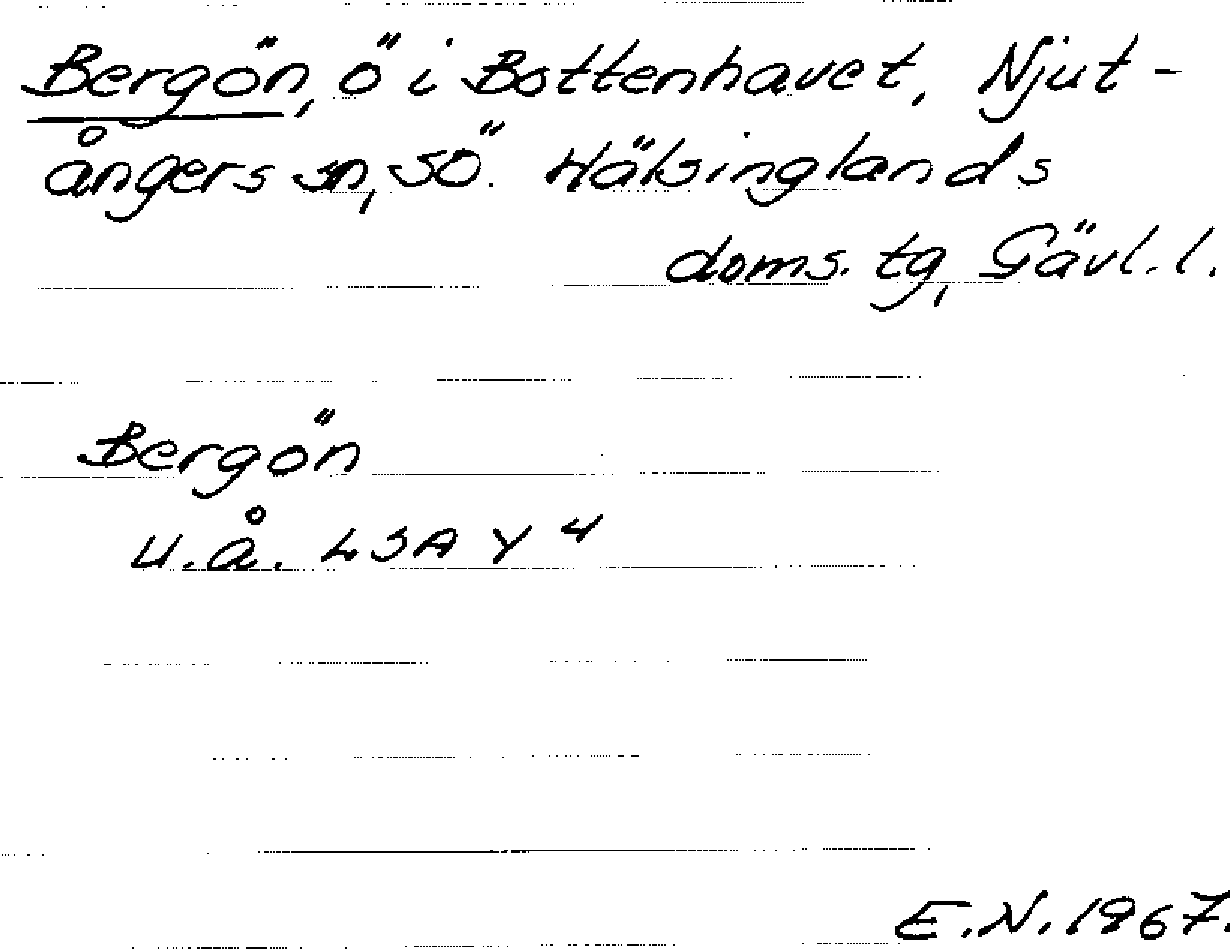 Bergön, ö i Bottenhavet, Njut-
ångers sn, SÖ. Hälsinglands
doms. tg, Gävl. l.
Bergön
U.å. LSA Y 4
E.N. 1967.